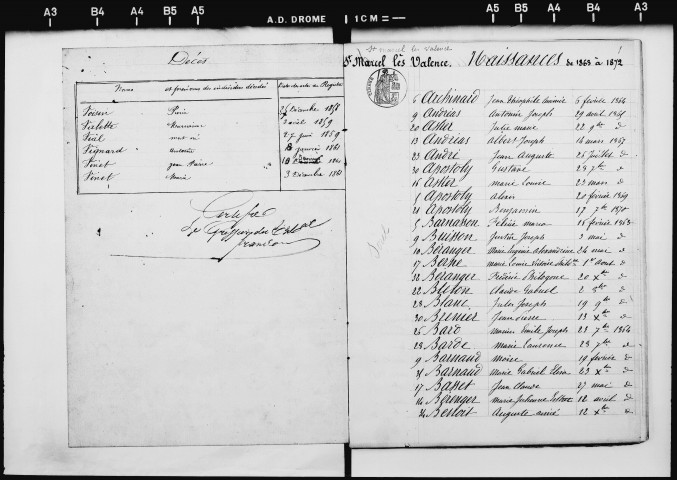 A3 A4 B5 A5 A.D. DROME 1 CM A5 B5 A4 A3
Décès
Noms et prénoms des individus décédés Date des actes du Registre
Voisin Pierre 25 Décembre 1858
Valette 2 avril 1859
Viel mort né 27 juin 1859
Vignard Antoinette 18 janvier 1861
Vinet Jean Pierre 18
Vinet Marie 3 Décembre 1861
Certifié
Le Greffier du Tribunal
St marcel les Valence
St Marcel lès Valence. Naissances de 1863 à 1872
1
6 Archinard Jean Théophile 6 février 1864
9 Andréas Antonin Joseph 29 avril 1865
20 Astier Julie marie 22 9bre d°
13 Andréas Albert Joseph 16 mars 1867
23 André Jean Auguste 25 juillet d°
30 Apostoly Gustave 29 7bre d°
16 Astier marie Louise 23 mars d°
5 Apostoly 20 février 1869
21 Apostoly Benjamin 17 7bre 1870
5 Barnasson Félicie maria 15 février 1863
9 Buisson Justin Joseph 3 mai d°
10 Béranger Marie Eugénie Alexandrine 24 mai d°
17 Berne marie Louise Victoire 1er Aout d°
32 Béranger Frédéric Philogone 20 Xbre d°
22 Bleton Claude Gabriel 2 8bre d°
28 Blanc Jules Joseph 19 9bre d°
30 Brenier Jean Pierre 13 Xbre d°
25 Baro Marius Emile Joseph 23 7bre 1864
28 Barde Marie Laurence 28 7bre d°
9 Barnaud Moïse 19 février d°
31 Barnaud Marie Gabriel Elisa 23 Xbre d°
17 Basset Jean Claude 27 mai d°
14 Bérenger Marie Julienne 12 avril d°
34 Benoit Auguste aimé 12 Xbre d°
A3 A4 B5 A5 A5 B5 A4 A3